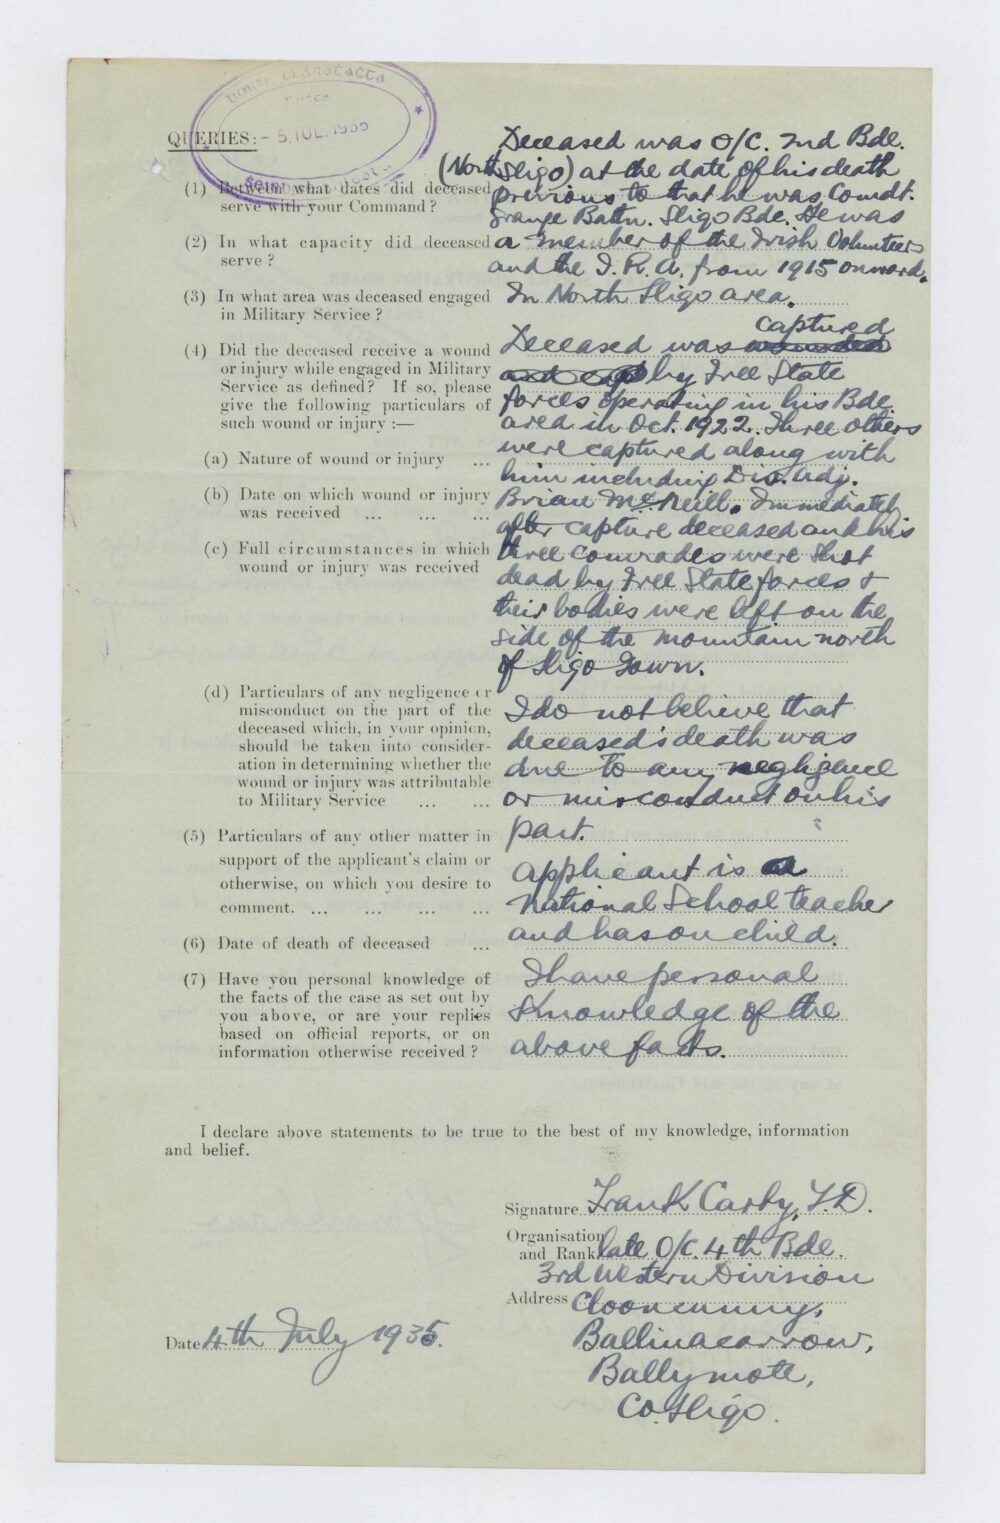 QUERIES:—
- 5 IUL. 1935
(1) Between what dates did deceased
serve with your Command?
(2) In what capacity did deceased
serve?
Deceased was O/C. 2nd Bde.
(North Sligo) at the date of his death
previous to that he was Comdt.
Grange Battn. Sligo Bde. He was
a member of the Irish Volunteers
and the I.R.A. from 1915 onward.
(3) In what area was deceased engaged
in Military Service?
In North Sligo area.
(4) Did the deceased receive a wound
or injury while engaged in Military
Service as defined? If so, please
give the following particulars of
such wound or injury :—
(a) Nature of wound or injury ...
(b) Date on which wound or injury
was received ... ... ...
(c) Full circumstances in which
wound or injury was received
captured
Deceased was wounded
and by Free State
forces operating in his Bde.
area in Oct. 1922. Three others
were captured along with
him including Div. Adj.
Brian McNeill. Immediately
after capture deceased and his
three comrades were shot
dead by Free State forces &
their bodies were left on the
side of the mountain north
of Sligo Town.
(d) Particulars of any negligence or
misconduct on the part of the
deceased which, in your opinion,
should be taken into consider-
ation in determining whether the
wound or injury was attributable
to Military Service ... ...
I do not believe that
deceased's death was
due to any negligence
or misconduct on his
part.
(5) Particulars of any other matter in
support of the applicant's claim or
otherwise, on which you desire to
comment. ... ... ... ...
Applicant is a
National School teacher
and has on child.
(6) Date of death of deceased ...
(7) Have you personal knowledge of
the facts of the case as set out by
you above, or are your replies
based on official reports, or on
information otherwise received?
I have personal
Knowledge of the
above facts.
I declare above statements to be true to the best of my knowledge, information
and belief.
Signature Frank Carty, T.D.
Organisation
and Rank late O/C. 4th Bde.
3rd Western Division
Address Cloonacunny,
Ballinacarrow,
Ballymote,
Co. Sligo.
Date 4th July 1935.